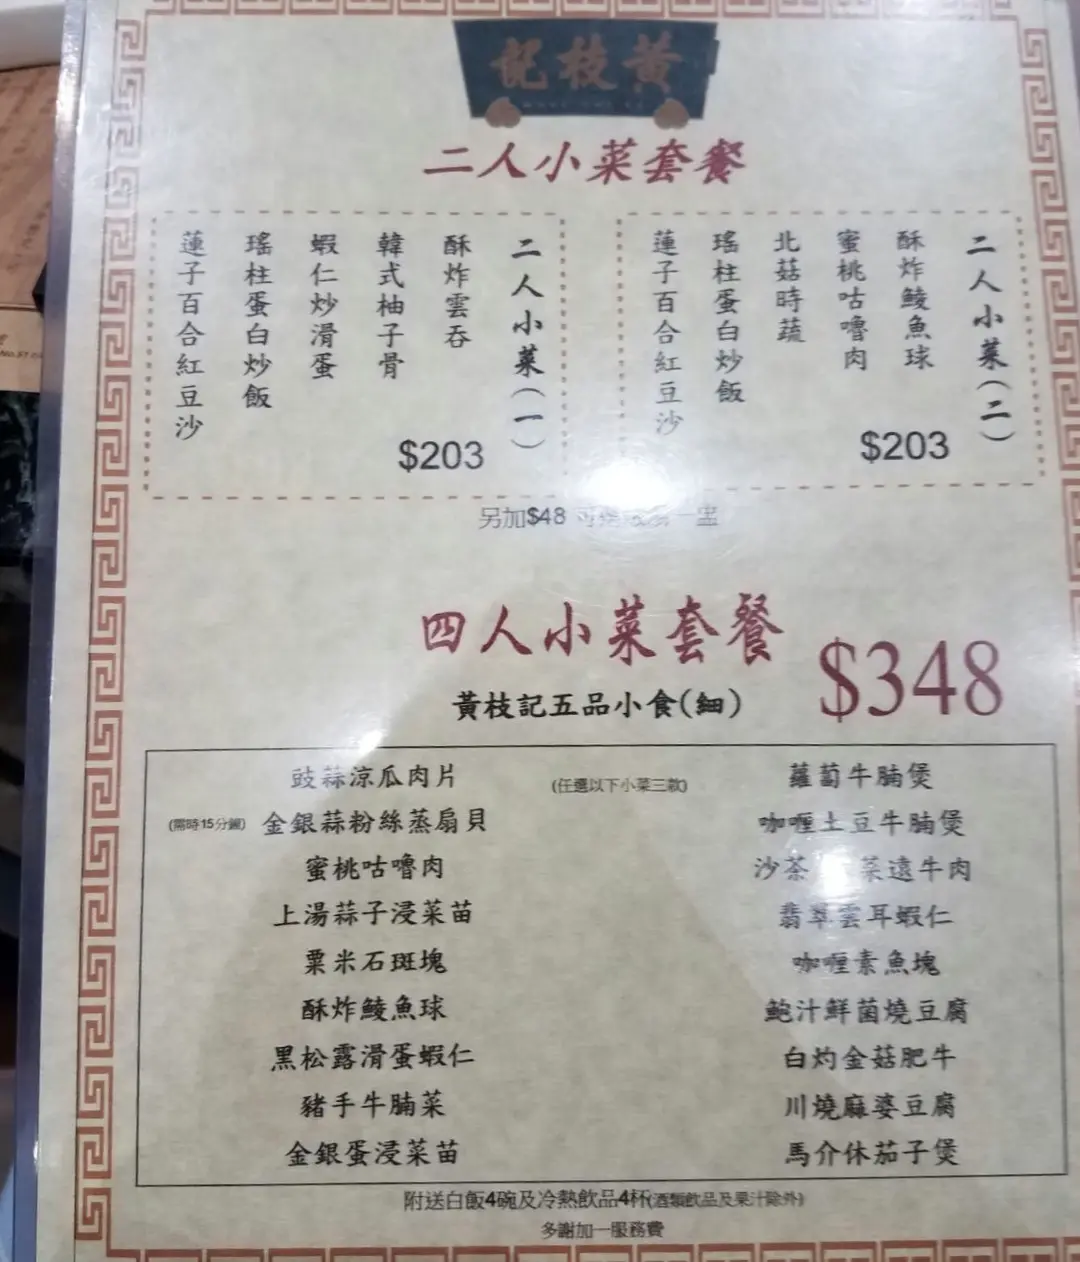 黃枝記
二人小菜套餐
二人小菜(一)
酥炸雲吞
韓式柚子骨
蝦仁炒滑蛋
瑤柱蛋白炒飯
蓮子百合紅豆沙
$203
二人小菜(二)
酥炸鯪魚球
蜜桃咕嚕肉
北菇時蔬
瑤柱蛋白炒飯
蓮子百合紅豆沙
$203
另加$48
四人小菜套餐
$348
黃枝記五品小食(細)
(任選以下小菜三款)
豉蒜涼瓜肉片
(需時15分鐘) 金銀蒜粉絲蒸扇貝
蜜桃咕嚕肉
上湯蒜子浸菜苗
粟米石斑塊
酥炸鯪魚球
黑松露滑蛋蝦仁
豬手牛腩菜
金銀蛋浸菜苗
蘿蔔牛腩煲
咖喱土豆牛腩煲
沙茶 菜遠牛肉
翡翠雲耳蝦仁
咖喱素魚塊
鮑汁鮮菌燒豆腐
白灼金菇肥牛
川燒麻婆豆腐
馬介休茄子煲
附送白飯4碗及冷熱飲品4杯(酒類飲品及果汁除外)
多謝加一服務費